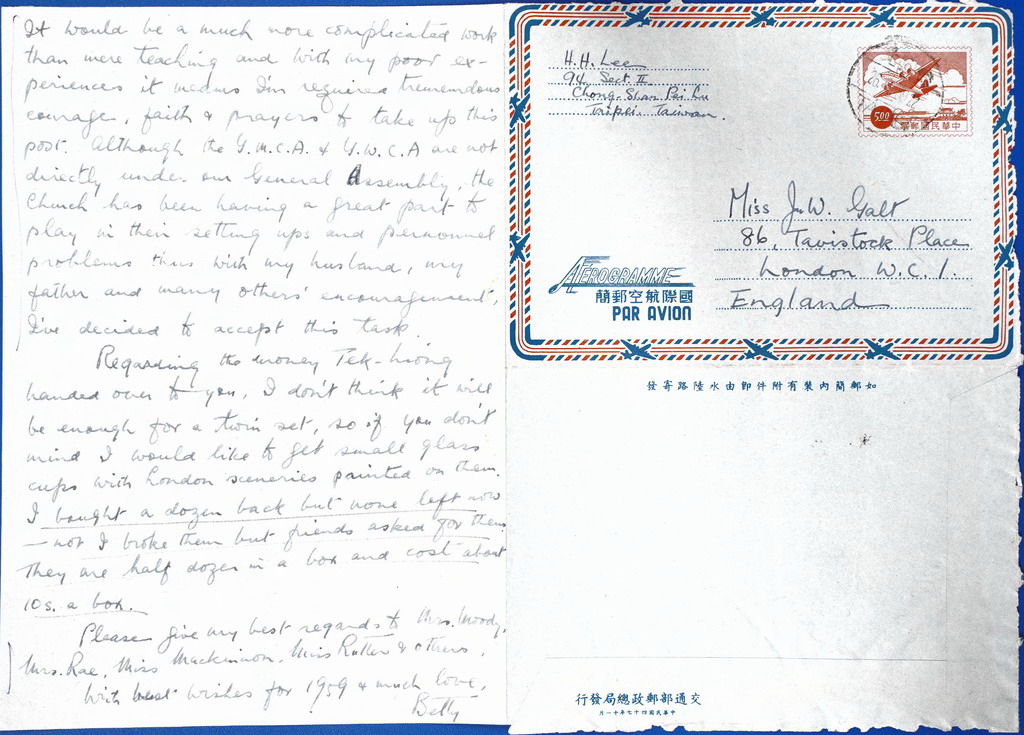 It would be a much more complicated work
than mere teaching and with my poor ex-
periences it means I'm required tremendous
courage, faith & prayers to take up this
post. Although the Y.M.C.A. & Y.W.C.A are not
directly under our General Assembly, the
Church has been having a great part to
play in their setting ups and personnel
problems thus with my husband, my
father and many others' encouragement,
I've decided to accept this task.
Regarding the money Tek-hiong
handed over to you, I don't think it will
be enough for a twin set, so if you don't
mind I would like to get small glass
cups with London sceneries painted on them.
I bought a dozen back but none left now
— not I broke them but friends asked for them
They are half dozen in a box and cost about
10s. a box.
Please give my best regards to Mrs. Moody,
Mrs. Rae, Miss Mackinnon, Miss Rutter & others.
With best wishes for 1959 & much love,
Betty
H. H. Lee
94 Sect. II
Chong-Shan Pei Lu
Taipei, Taiwan.
5.00
票郵國民華中
Miss J. W. Galt
86, Tavistock Place
London W.C.1.
England
AEROGRAMME
簡郵空航際國
PAR AVION
發寄路陸水由卽件附有裝內簡郵如
行發局總政郵部通交
中華民國四十七年十一月